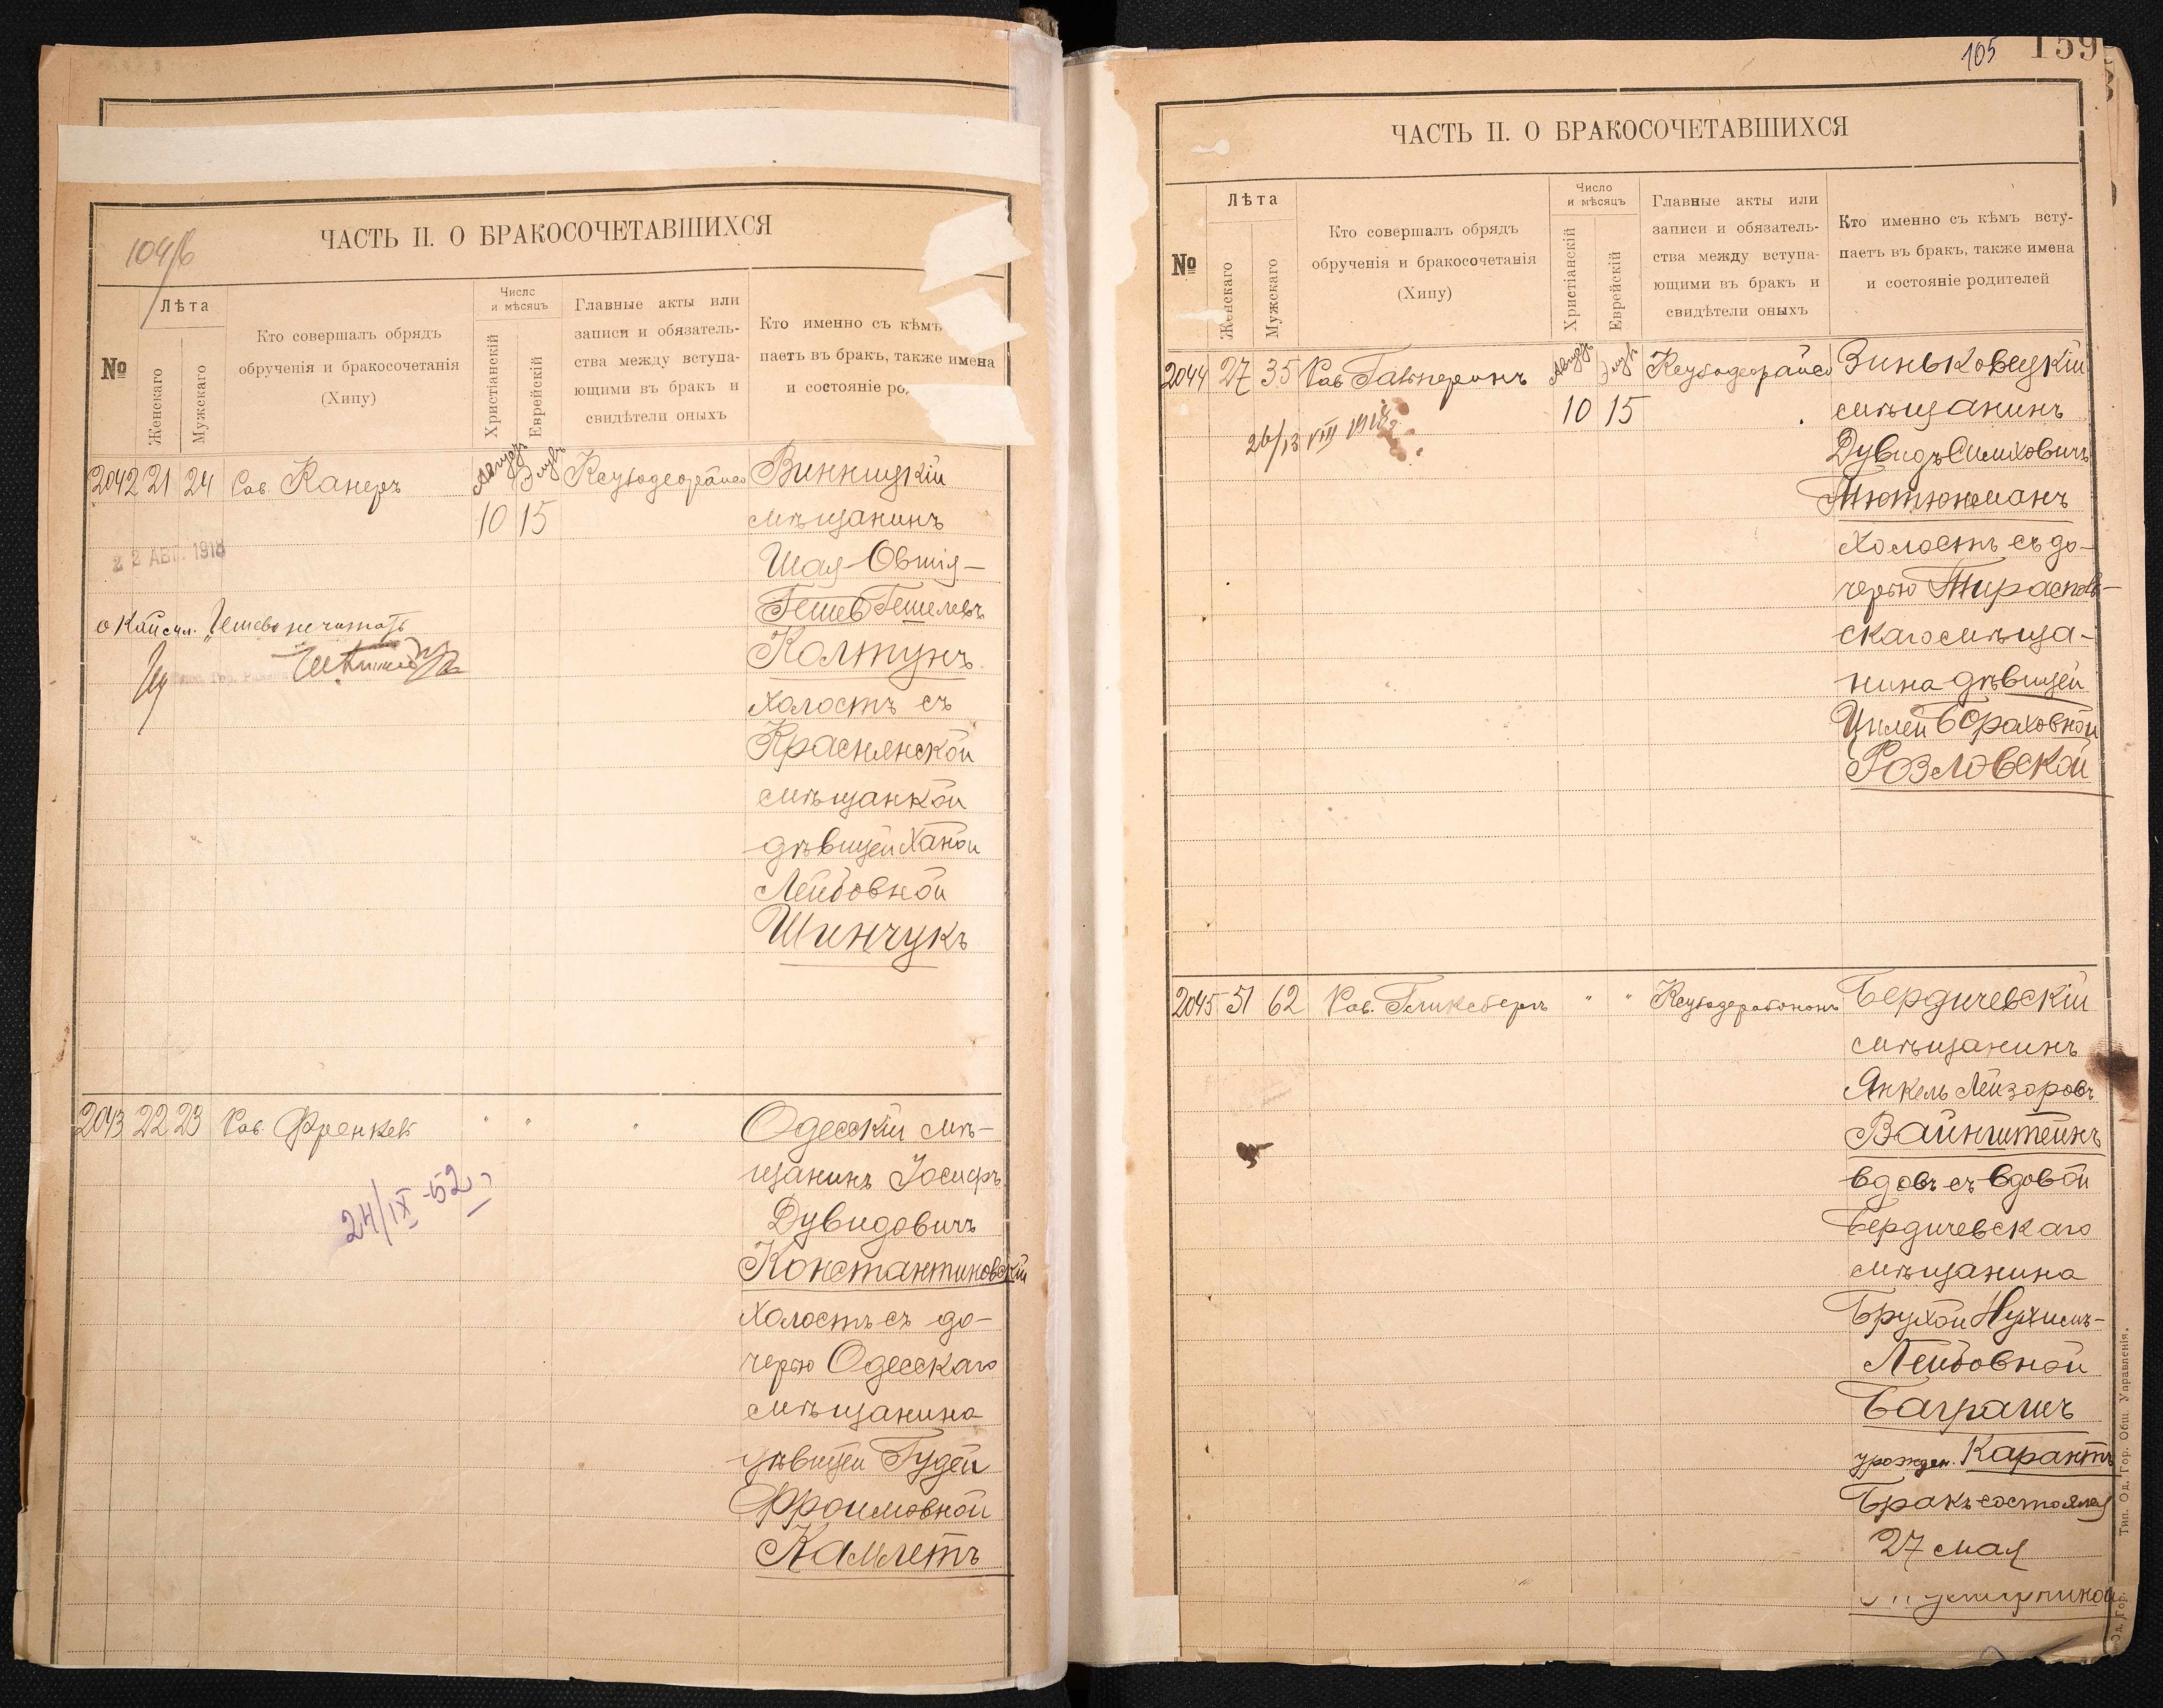 104/б
ЧАСТЬ II. О БРАКОСОЧЕТАВШИХСЯ
№
Лѣта
Женскаго
Мужскаго
Кто совершалъ обрядъ
обрученія и бракосочетанія
(Хипу)
Число
и мѣсяцъ
Христіанскій
Еврейскій
Главные акты или
записи и обязатель-
ства между вступа-
ющими въ бракъ и
свидѣтели оныхъ
Кто именно съ кѣмъ
паетъ въ бракъ, также имена
и состояніе ро
2042 21 24 Рав. Канеръ Августъ Элулъ Ксубодеорайсо Винницкій
10 15 мѣщанинъ
22 АВГ. 1918 Шая-Овшія-
Гешев Гешелевъ
Колтунъ
холостъ съ
Краснянской
мѣщанкой
дѣвицей Ханой
Лейбовной
Шинчукъ
2043 22 23 Рав. Френкель " " " Одесскій мѣ-
щанинъ Іосифъ
24/IX-52 г.
Дувидовичъ
Константиновскій
холостъ съ до-
черью Одесскаго
мѣщанина
дѣвицей Гудей
Фроимовной
Камлетъ
105 159
ЧАСТЬ II. О БРАКОСОЧЕТАВШИХСЯ
№
Лѣта
Женскаго
Мужскаго
Кто совершалъ обрядъ
обрученія и бракосочетанія
(Хипу)
Число
и мѣсяцъ
Христіанскій
Еврейскій
Главные акты или
записи и обязатель-
ства между вступа-
ющими въ бракъ и
свидѣтели оныхъ
Кто именно съ кѣмъ всту-
паетъ въ бракъ, также имена
и состояніе родителей
2044 27 35 Рав Гальперинъ Августъ Элулъ Ксубодеорайсо Зиньковецкій
10 15 мѣщанинъ
26/13 VIII 1918 г.
Дувидъ Симховичъ
Тютюнманъ
холостъ съ до-
черью Тирасполь-
скаго мѣща-
нина дѣвицей
Цилей Бораховной
Розловской
2045 51 62 Рав. Гликсбергъ " " Ксубодерабононъ Бердичевскій
мѣщанинъ
Янкель Лейзоровъ
Вайнштейнъ
вдовъ съ вдовой
Бердичевскаго
мѣщанина
Брухой Нухимъ-
Лейбовной
Баграшъ
урожден. Карантъ
Бракъ состоялся
27 мая
Тип. Од. Гор. Общ. Управленія.